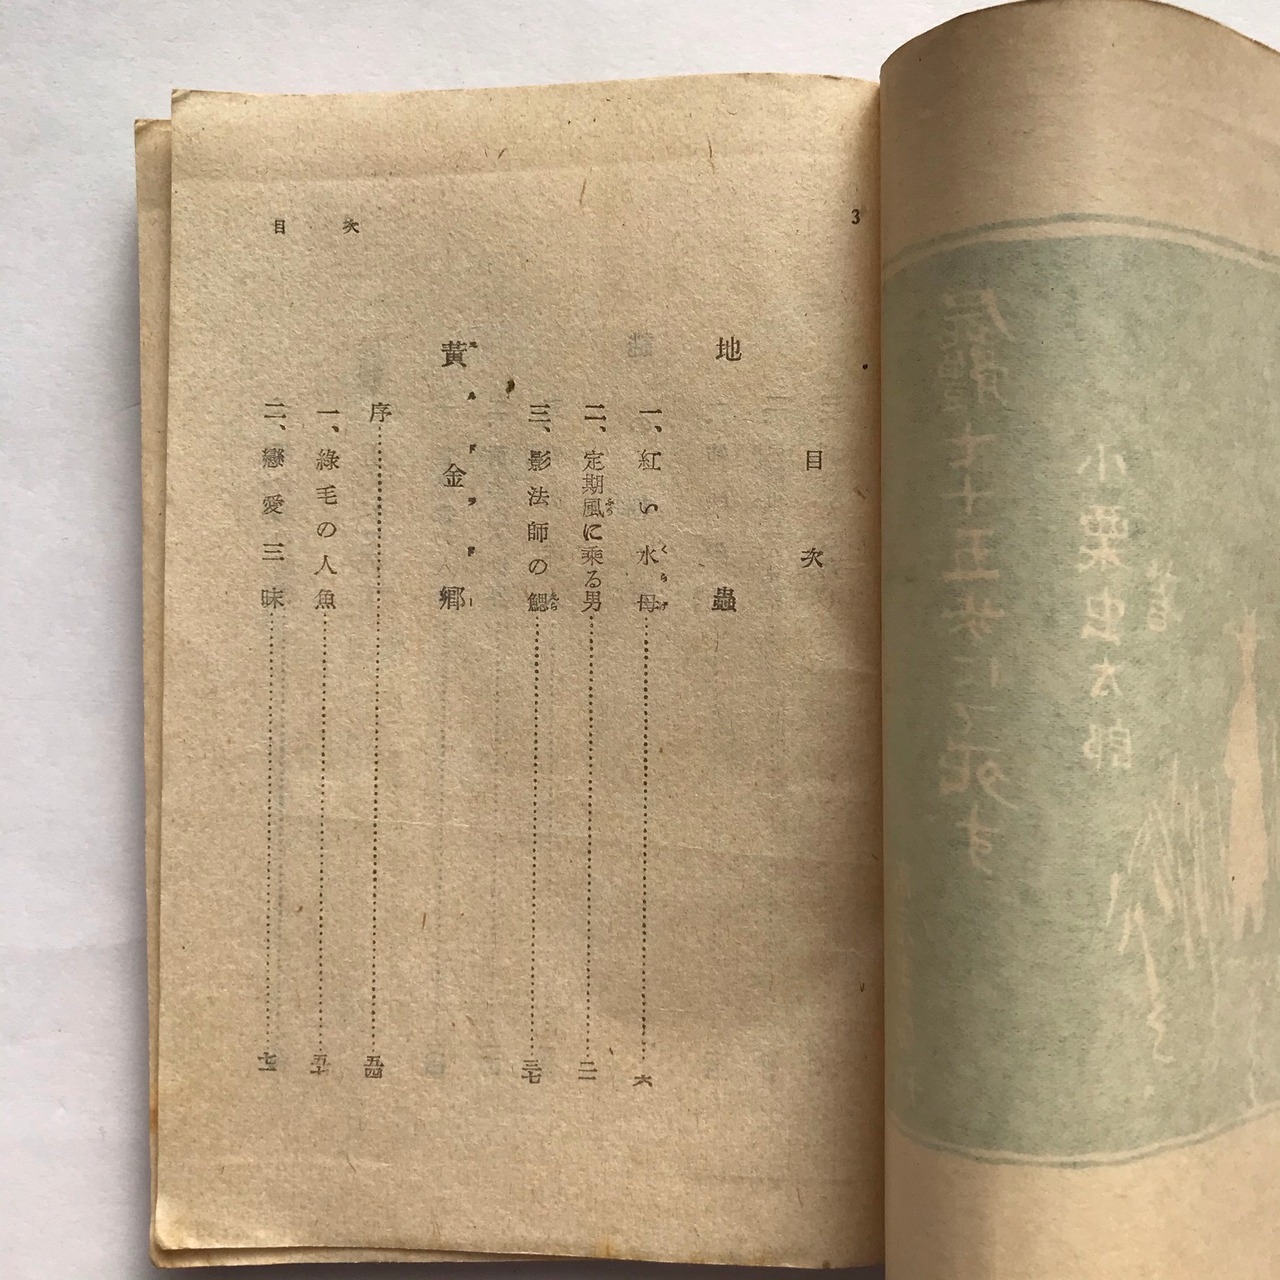 3
目次
地蟲
一、紅い水母 六
二、定期風に乗る男
三、影法師の鰓 三七
黃金鄕
序 五四
一、綠毛の人魚
二、戀愛三昧
目次
小栗虫太郎